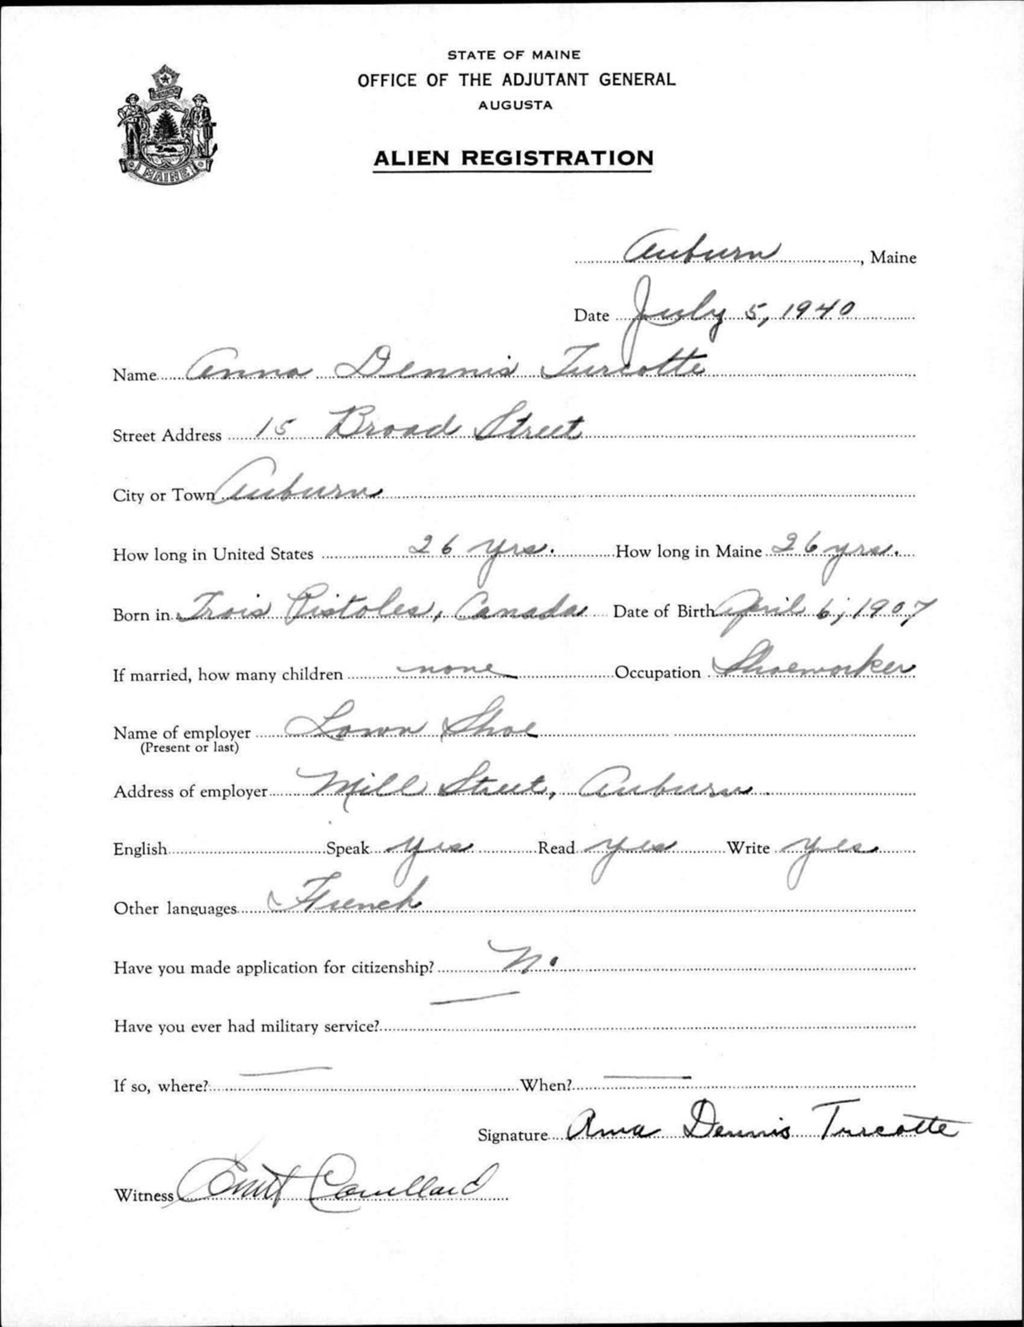 STATE OF MAINE
OFFICE OF THE ADJUTANT GENERAL
AUGUSTA
MAINE
ALIEN REGISTRATION
Auburn, Maine
Date July 5, 1940
Name Anna Dennis Turcotte
Street Address 15 Broad Street
City or Town Auburn
How long in United States 26 yrs. How long in Maine 26 yrs.
Born in Trois Pistoles, Canada Date of Birth April 6, 1907
If married, how many children none Occupation Shoeworker
Name of employer Lown Shoe
(Present or last)
Address of employer Mill Street, Auburn.
English Speak yes Read yes Write yes
Other languages French
Have you made application for citizenship? No
Have you ever had military service? —
If so, where? — When? —
Signature Anna Dennis Turcotte
Witness